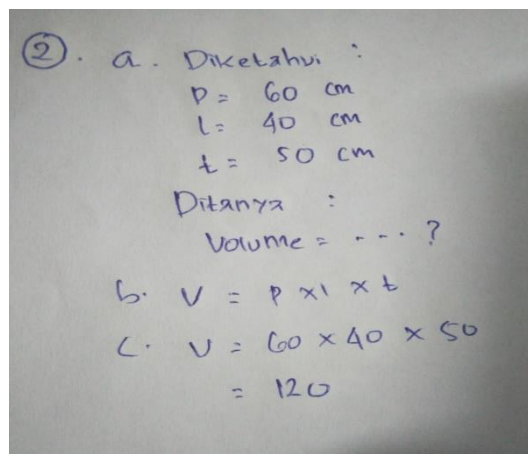 2. a. Diketahui :
p = 60 cm
l = 40 cm
t = 50 cm
Ditanya :
Volume = ... ?
b. V = p x l x t
c. V = 60 x 40 x 50
= 120